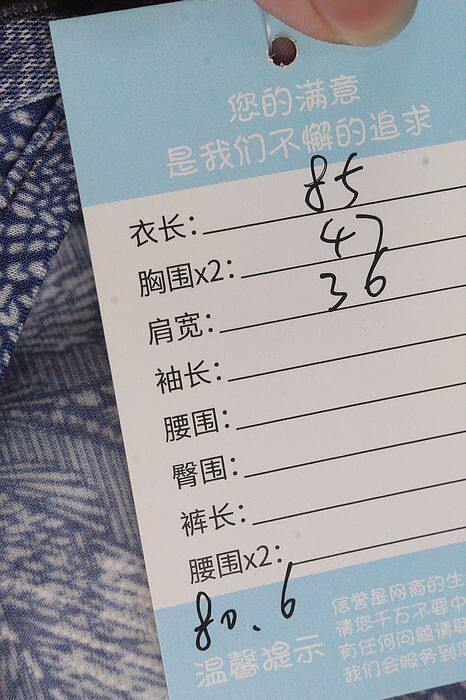 您的满意
是我们不懈的追求
衣长: 85
胸围x2: 47
肩宽: 36
袖长:
腰围:
臀围:
裤长:
腰围x2:
80.6
温馨提示
信誉是网商的生
请您千万不要中
有任何问题请联
我们会服务到您